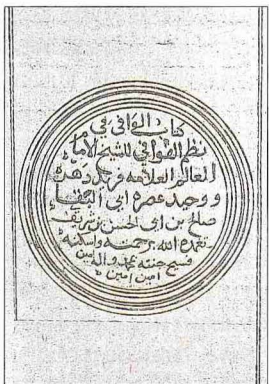 كتاب الوافي في
نظم القوافي للشيخ الامام
العالم العلامه فريد دهره
ووحيد عصره ابي البقا
صالح بن ابي الحسن بن شريف
تغمده الله برحمته واسكنه
فسيح جنته بمحمد واله امين
امين امين